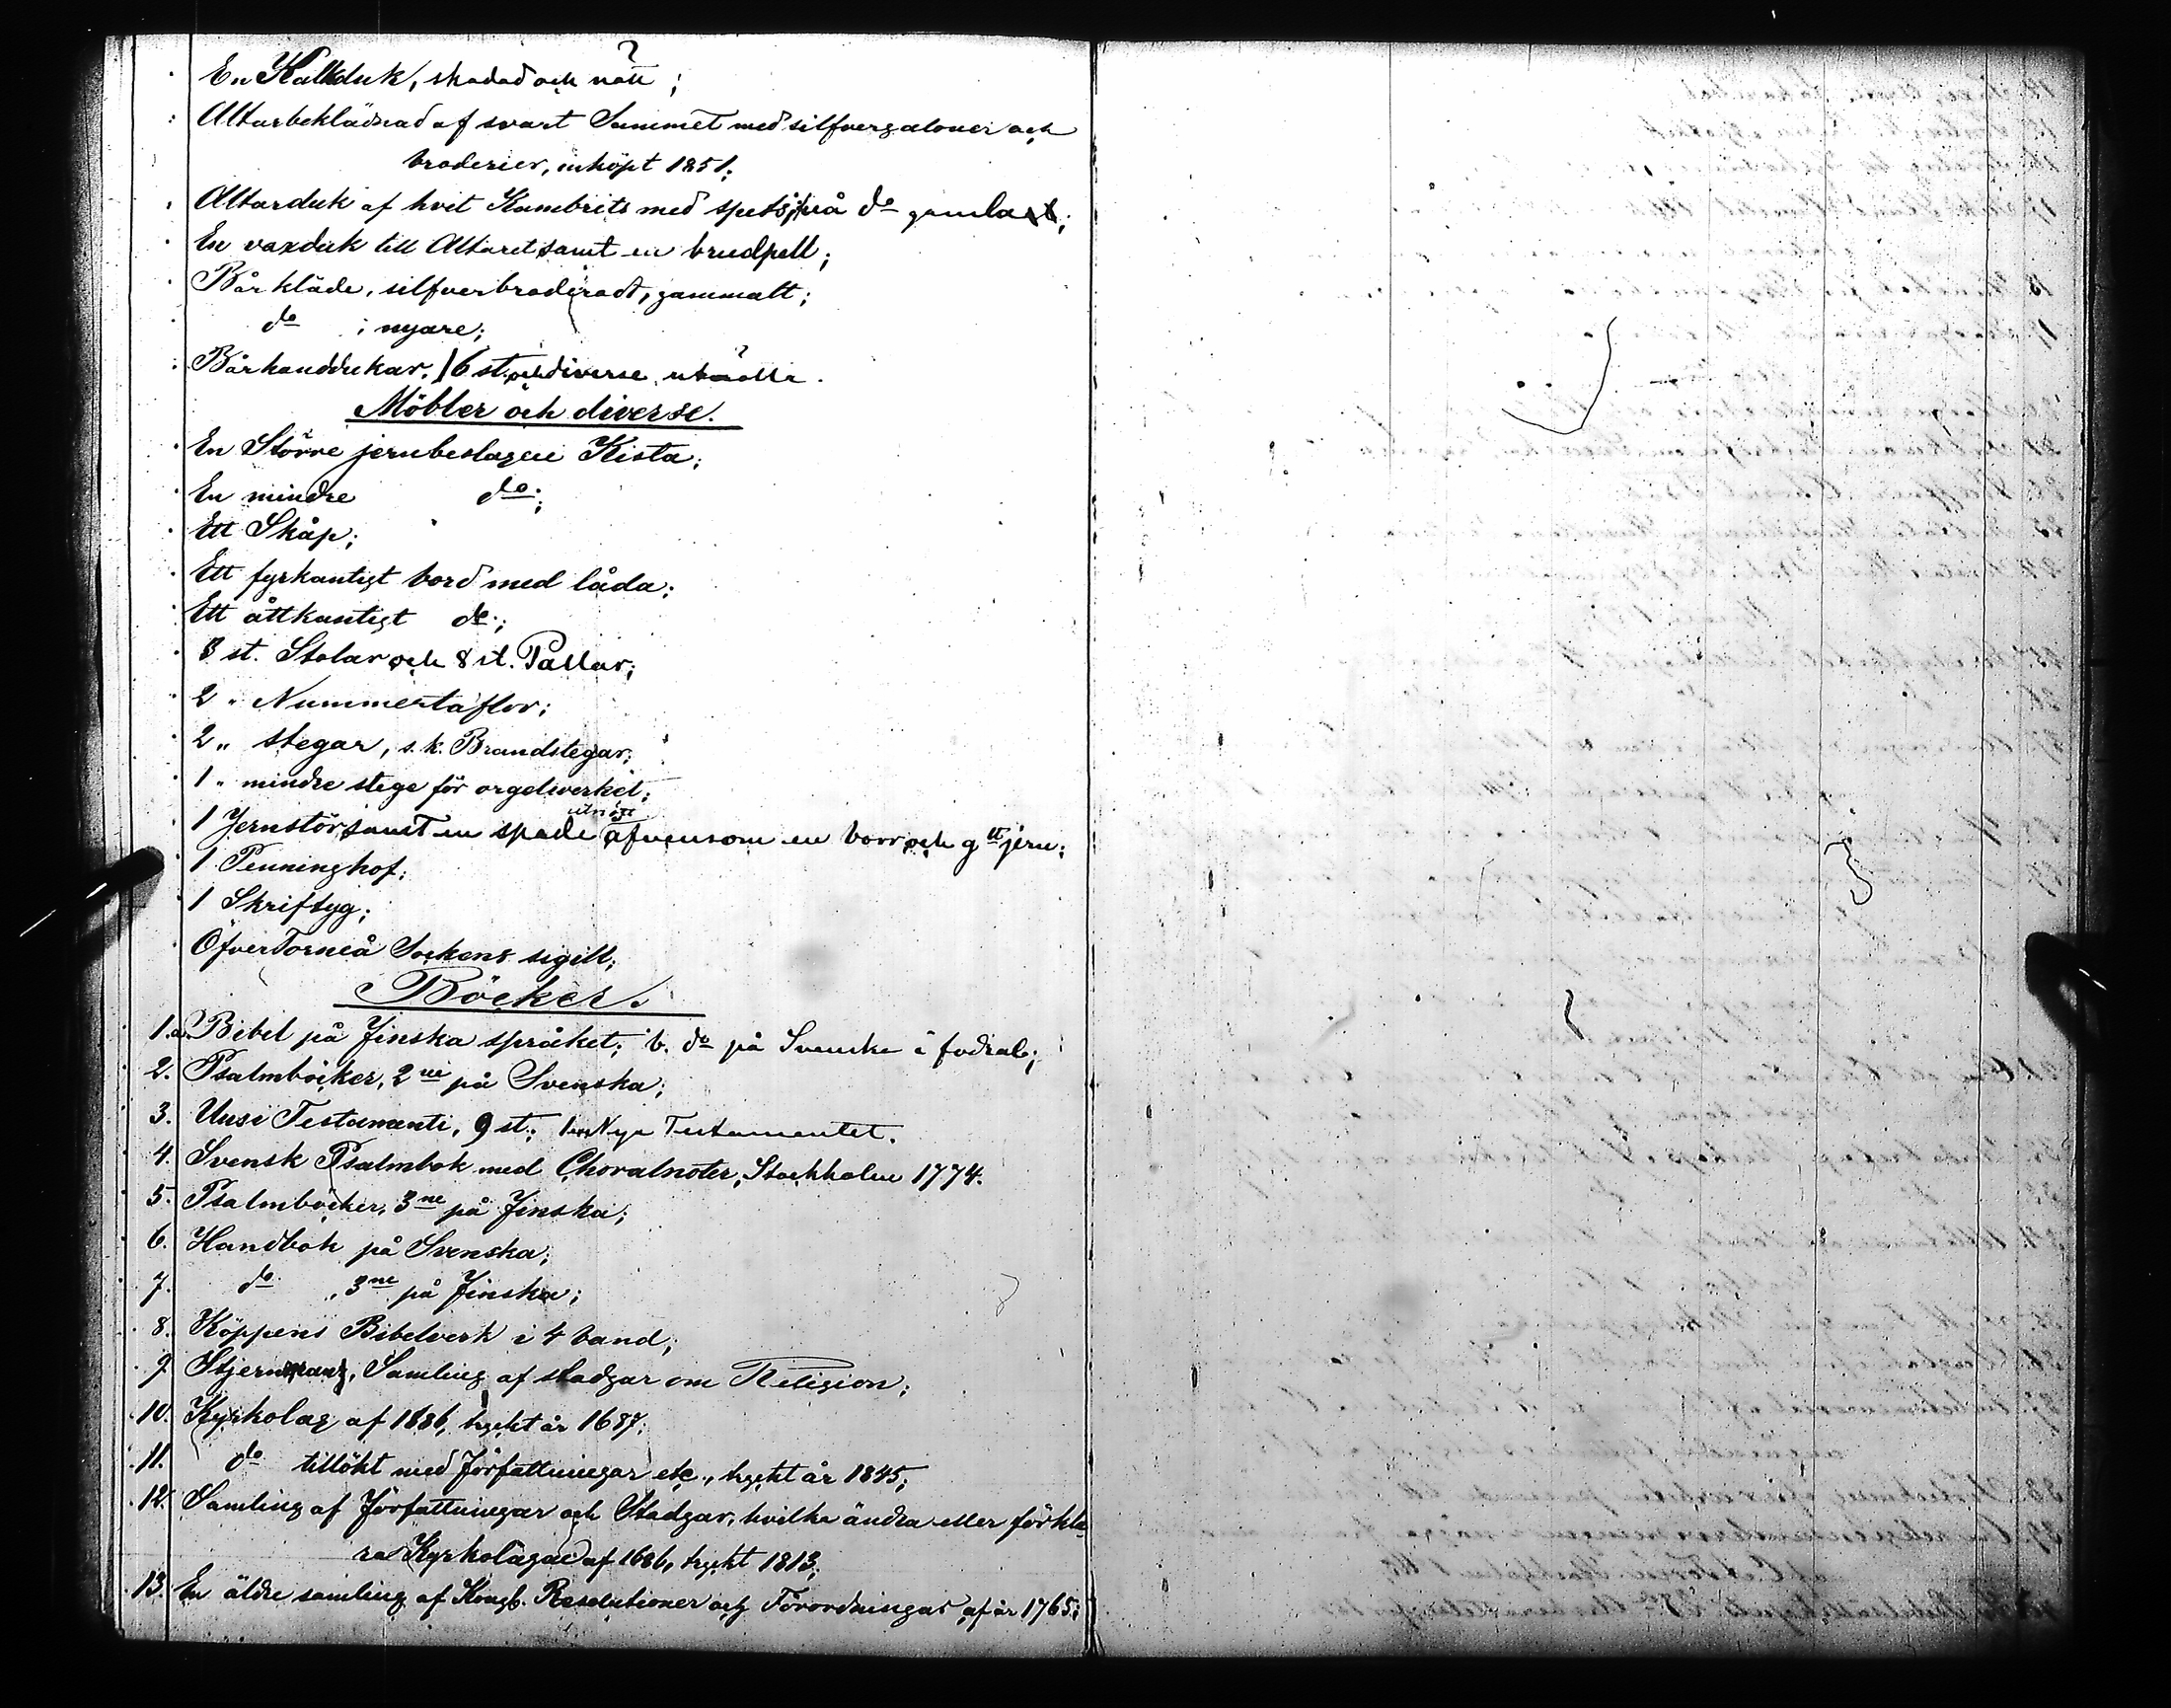 En Kalkduk, skadad och nött;
Altarbeklädnad af svart Sammet med silfvergaloner och
broderier, inköpt 1851;
Altarduk af hvit Kambrits med spets, två do gamla;
En vaxduk till Altaret samt en brudpell;
Bårkläde, silfverbroderadt, gammalt;
do ; nyare;
Bårhanddukar, 16 st. och diverse utnötta.
Möbler och diverse.
En Större jernbeslagen Kista;
En mindre do;
Ett Skåp;
Ett fyrkantigt bord med låda;
Ett åttkantigt do;
8 st. Stolar och 8 st. Pallar;
2 „ Nummertaflor;
2 „ stegar, s.k. Brandstegar;
1 „ mindre stege för orgelverket;
utnött
1 Jernstör samt en spade äfvensom en borr och gttjern;
1 Penninghof;
1 Skriftyg;
ÖfverTorneå Sockens sigill;
Böcker.
1. a. Bibel på Finska språket; b. do på Svenska i fodral;
2. Psalmböcker, 2ne på Svenska;
3. Uusi Testamenti, 9 st.; Nya Testamentet.
4. Svensk Psalmbok med Choralnoter, Stockholm 1774.
5. Psalmböcker, 3ne på Finska;
6. Handbok på Svenska;
7. do , 3ne på Finska;
8. Köppens Bibelverk i 4 band;
9 Samling af stadgar om Religion;
10. Kyrkolag af 1686, tryckt år 1687;
11. do tillökt med Författningar etc., tryckt år 1845;
12. Samling af Författningar och Stadgar, hvilka ändra eller förkla
ra Kyrkolagen af 1686, tryckt 1813;
13. En äldre samling af Kongl. Resolutioner och Förordningar af år 1765;